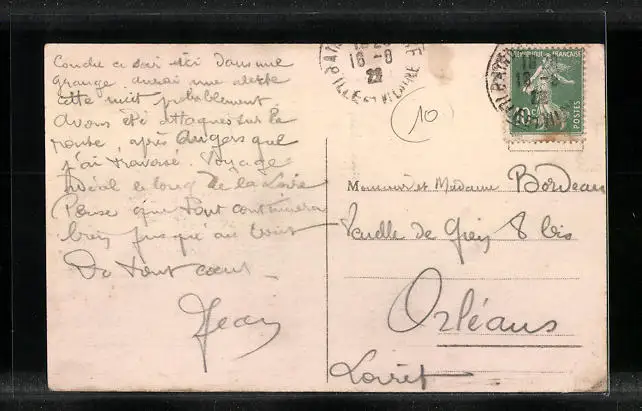 Couche ce soir ici dans une
grange, aurai une alerte
cette nuit probablement.
Avons été attaqués sur la
route, après Angers que
j'ai traversé. Voyage
idéal le long de la Loire
Pense que tout continuera
bien jusqu'au bout
De tout cœur
Jean
(10)
16-8
22
ILLE ET VILAINE
REPUBLIQUE FRANÇAISE
POSTES
Monsieur et Madame Bordeau
8 bis
Orléans
Loiret